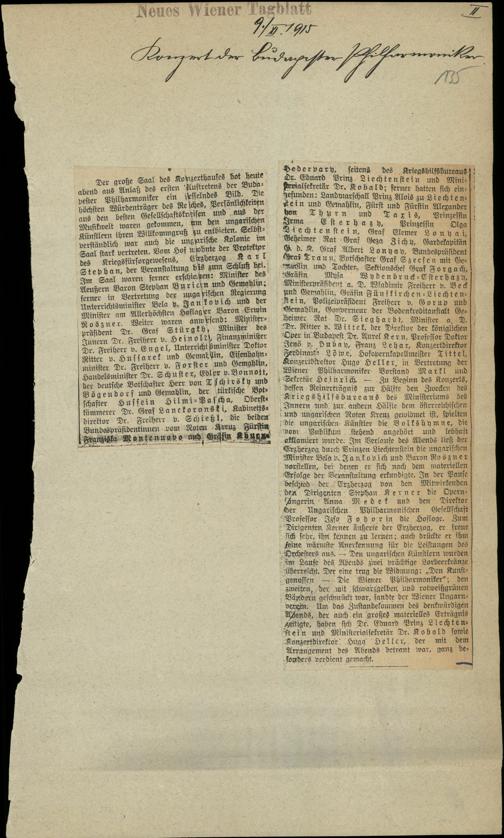 Neues Wiener Tagblatt
II
9./XI. 1915
Konzert der Budapester Philharmoniker.
135
Der große Saal des Konzerthauses bot heute
abend aus Anlaß des ersten Auftretens der Buda-
pester Philharmoniker ein fesselndes Bild. Die
höchsten Würdenträger des Reiches, Persönlichkeiten
aus den besten Gesellschaftskreisen und aus der
Musikwelt waren gekommen, um den ungarischen
Künstlern ihren Willkommgruß zu entbieten. Selbst-
verständlich war auch die ungarische Kolonie im
Saal stark vertreten. Vom Hof wohnte der Protektor
des Kriegsfürsorgewesens, Erzherzog Karl
Stephan, der Veranstaltung bis zum Schluß bei.
Im Saal waren ferner erschienen: Minister des
Aeußern Baron Stephan Burian und Gemahlin,
ferner in Vertretung der ungarischen Regierung
Unterrichtsminister Bela v. Jankovich und der
Minister am Allerhöchsten Hoflager Baron Erwin
Roszner. Weiter waren anwesend: Minister-
präsident Dr. Graf Stürgkh, Minister des
Innern Dr. Freiherr v. Heinold, Finanzminister
Dr. Freiherr v. Engel, Unterrichtsminister Doktor
Ritter v. Hussarek und Gemahlin, Eisenbahn-
minister Dr. Freiherr v. Forster und Gemahlin,
Handelsminister Dr. Schuster, Edler v. Bonnott,
der deutsche Botschafter Herr von Tschirsky und
Bögendorff und Gemahlin, der türkische Bot-
schafter Hussein Hilmi-Pascha, Oberst-
kämmerer Dr. Graf Lanckoronski, Kabinetts-
direktor Dr. Freiherr v. Schießl, die beiden
Bundespräsidentinnen vom Roten Kreuz Fürstin
Franziska Montenuovo und Gräfin Khuen-
Hedervary, seitens des Kriegshilfsbureaus
Dr. Eduard Prinz Liechtenstein und Mini-
sterialsekretär Dr. Kobald; ferner hatten sich ein-
gefunden: Landmarschall Prinz Alois zu Liechten-
stein und Gemahlin, Fürst und Fürstin Alexander
von Thurn und Taxis, Prinzessin
Irma Esterhazy, Prinzessin Olga
Liechtenstein, Graf Clemer Lonyai,
Geheimer Rat Graf Geza Zichy, Gardekapitän
G. d. K. Graf Albert Lonyay, Bundespräsident
Graf Traun, Botschafter Graf Szecsen mit Ge-
mahlin und Tochter, Sektionschef Graf Forgach,
Gräfin Misa Wydenbruck-Esterhazy,
Ministerpräsident a. D. Wladimir Freiherr v. Beck
und Gemahlin, Gräfin Fünfkirchen-Liechten-
stein, Polizeipräsident Freiherr v. Gorup und
Gemahlin, Gouverneur der Bodenkreditanstalt Ge-
heimer Rat Dr. Sieghardt, Minister a. D.
Dr. Ritter v. Wittek, der Direktor der königlichen
Oper in Budapest Dr. Aurel Kern, Professor Doktor
Jenö v. Hubay, Franz Lehar, Konzertdirektor
Ferdinand Löwe, Hofopernkapellmeister Tittel,
Konzertdirektor Hugo Heller, in Vertretung der
Wiener Philharmoniker Vorstand Markl und
Sekretär Heinrich. — Zu Beginn des Konzerts,
dessen Reinerträgnis zur Hälfte den Zwecken des
Kriegshilfsbureaus des Ministeriums des
Innern und zur anderen Hälfte dem österreichischen
und ungarischen Roten Kreuz gewidmet ist, spielten
die ungarischen Künstler die Volkshymne, die
vom Publikum stehend angehört und lebhaft
akklamiert wurde. Im Verlaufe des Abends ließ der
Erzherzog durch Prinzen Liechtenstein die ungarischen
Minister Bela v. Jankovich und Baron Roszner
vorstellen, bei denen er sich nach dem materiellen
Erfolge der Veranstaltung erkundigte. In der Pause
beschied der Erzherzog von den Mitwirkenden
den Dirigenten Stephan Kerner die Opern-
sängerin Anna Medek und den Direktor
der Ungarischen Philharmonischen Gesellschaft
Professor Jzso Fohorin die Hofloge. Zum
Dirigenten Kerner äußerte der Erzherzog, er freue
sich sehr, ihn kennen zu lernen; auch drückte er ihm
seine wärmste Anerkennung für die Leistungen des
Orchesters aus. — Den ungarischen Künstlern wurden
im Laufe des Abends zwei prächtige Lorbeerkränze
überreicht. Der eine trug die Widmung: „Den Kunst-
genossen — Die Wiener Philharmoniker"; den
zweiten, der mit schwarzgelben und rotweißgrünen
Bändern geschmückt war, sandte der Wiener Ungarn-
verein. Um das Zustandekommen des denkwürdigen
Abends, der auch ein großes materielles Erträgnis
zeitigte, haben sich Dr. Eduard Prinz Liechten-
stein und Ministerialsekretär Dr. Kobald sowie
Konzertdirektor Hugo Heller, der mit dem
Arrangement des Abends betraut war, ganz be-
sonders verdient gemacht.